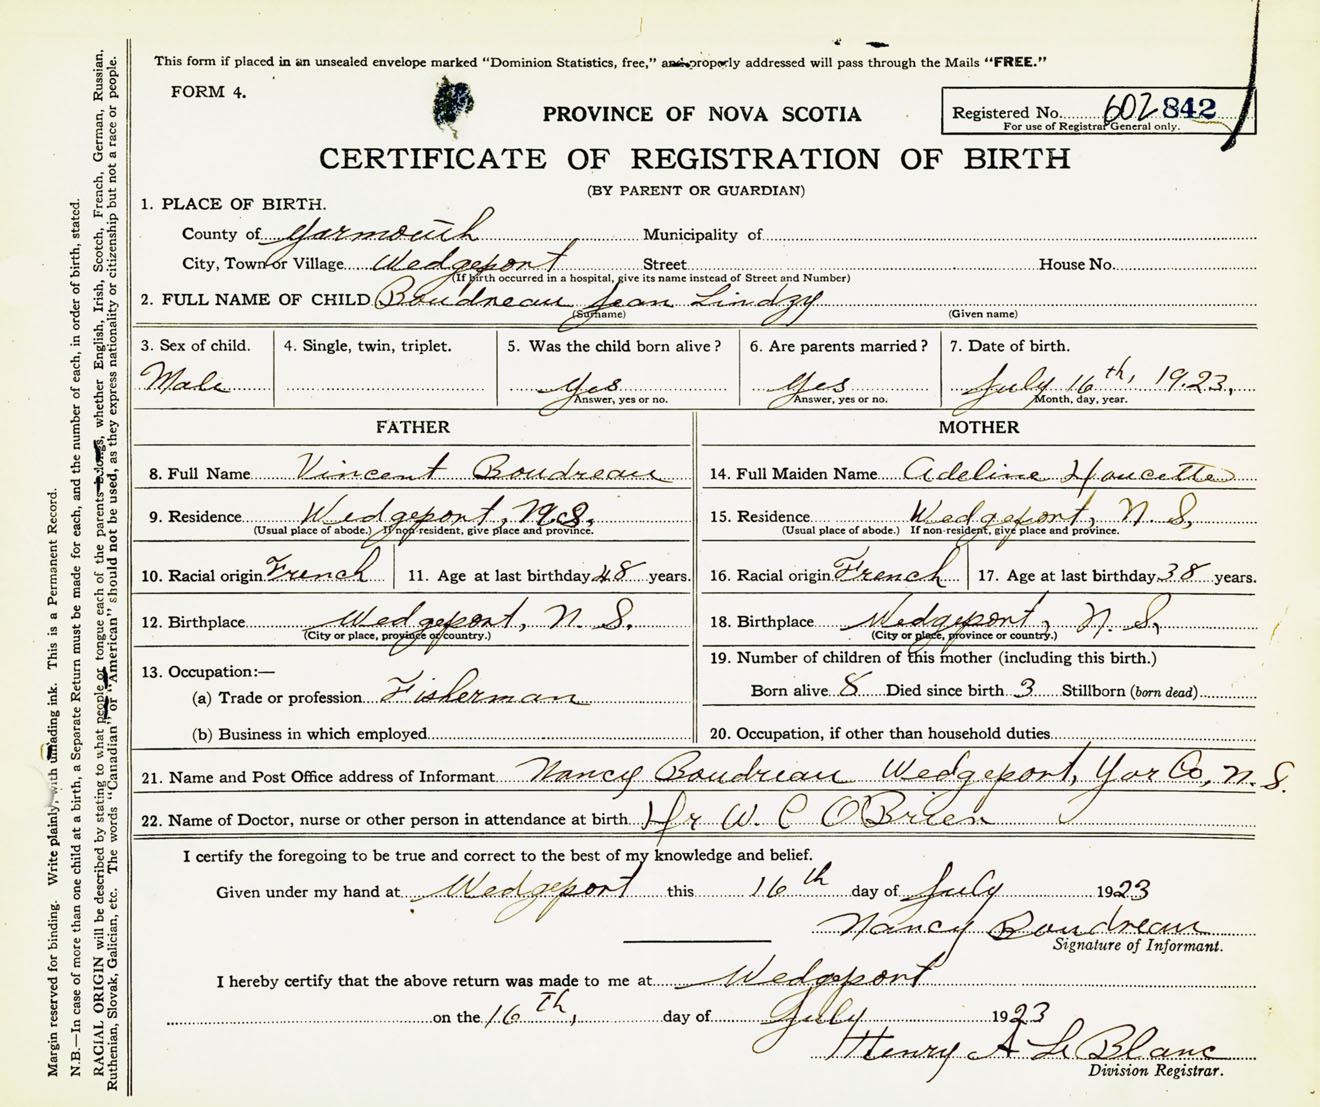 This form if placed in an unsealed envelope marked "Dominion Statistics, free," and properly addressed will pass through the Mails "FREE."
FORM 4.
PROVINCE OF NOVA SCOTIA
Registered No. 602 842
For use of Registrar General only.
CERTIFICATE OF REGISTRATION OF BIRTH
(BY PARENT OR GUARDIAN)
1. PLACE OF BIRTH.
County of Yarmouth Municipality of
City, Town or Village Wedgeport Street House No.
(If birth occurred in a hospital, give its name instead of Street and Number)
2. FULL NAME OF CHILD Boudreau Jean Lindzy
(Surname) (Given name)
3. Sex of child. 4. Single, twin, triplet. 5. Was the child born alive? 6. Are parents married? 7. Date of birth.
Male Yes Yes July 16th, 1923,
Answer, yes or no. Answer, yes or no. Month, day, year.
FATHER MOTHER
8. Full Name Vincent Boudreau 14. Full Maiden Name Adeline Doucette
9. Residence Wedgeport, N.S. 15. Residence Wedgeport, N.S,
(Usual place of abode.) If non-resident, give place and province. (Usual place of abode.) If non-resident, give place and province.
10. Racial origin French 11. Age at last birthday 48 years. 16. Racial origin French 17. Age at last birthday 38 years.
12. Birthplace Wedgeport, N.S. 18. Birthplace Wedgeport, N.S,
(City or place, province or country.) (City or place, province or country.)
13. Occupation:— 19. Number of children of this mother (including this birth.)
(a) Trade or profession Fisherman Born alive 8 Died since birth 3 Stillborn (born dead)
(b) Business in which employed 20. Occupation, if other than household duties
21. Name and Post Office address of Informant Nancy Boudreau Wedgeport, Yar Co, N.S.
22. Name of Doctor, nurse or other person in attendance at birth Dr W. C O'Brien
I certify the foregoing to be true and correct to the best of my knowledge and belief.
Given under my hand at Wedgeport this 16th day of July 1923
Nancy Boudreau
Signature of Informant.
I hereby certify that the above return was made to me at Wedgeport
on the 16th, day of July 1923
Henry A Le Blanc
Division Registrar.
Margin reserved for binding. Write plainly, with unfading ink. This is a Permanent Record.
N.B.—In case of more than one child at a birth, a Separate Return must be made for each, and the number of each, in order of birth, stated.
RACIAL ORIGIN will be described by stating to what people or tongue each of the parents belongs, whether English, Irish, Scotch, French, German, Russian,
Ruthenian, Slovak, Galician, etc. The words "Canadian" or "American" should not be used, as they express nationality or citizenship but not a race or people.